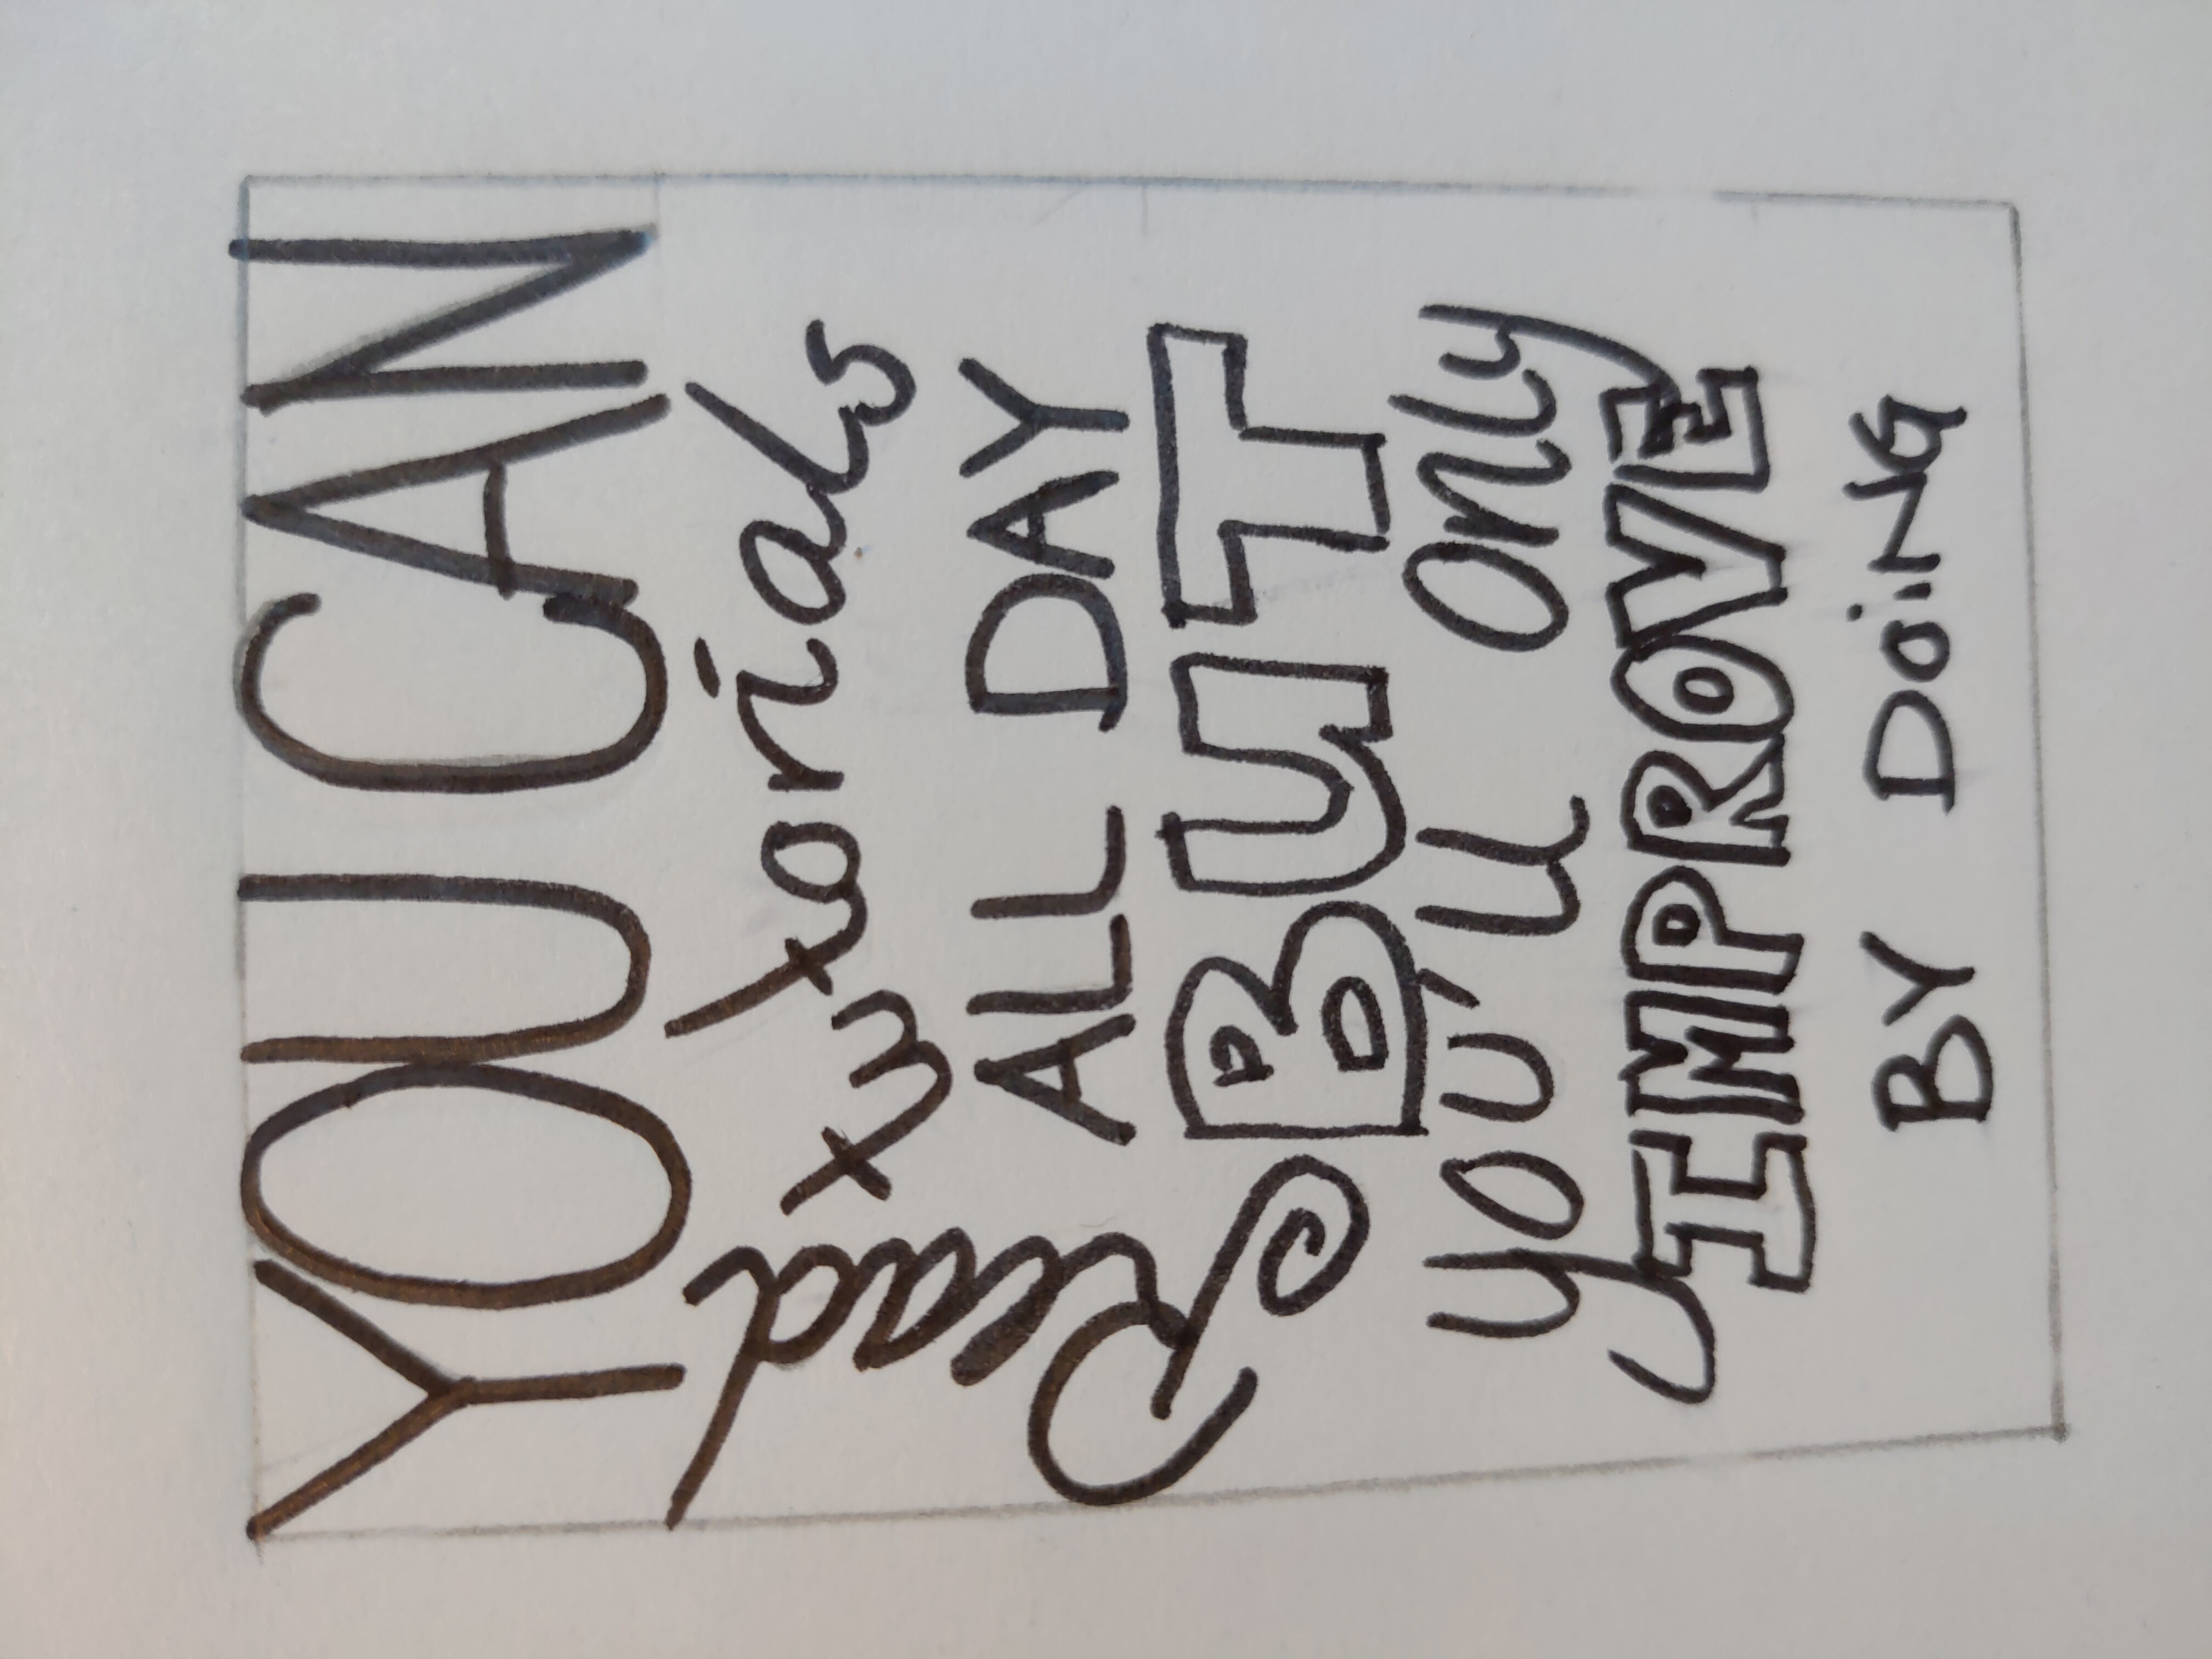 YOU CAN
Read
tutorials
ALL DAY
BUT
you'll only
IMPROVE
BY DOiNG